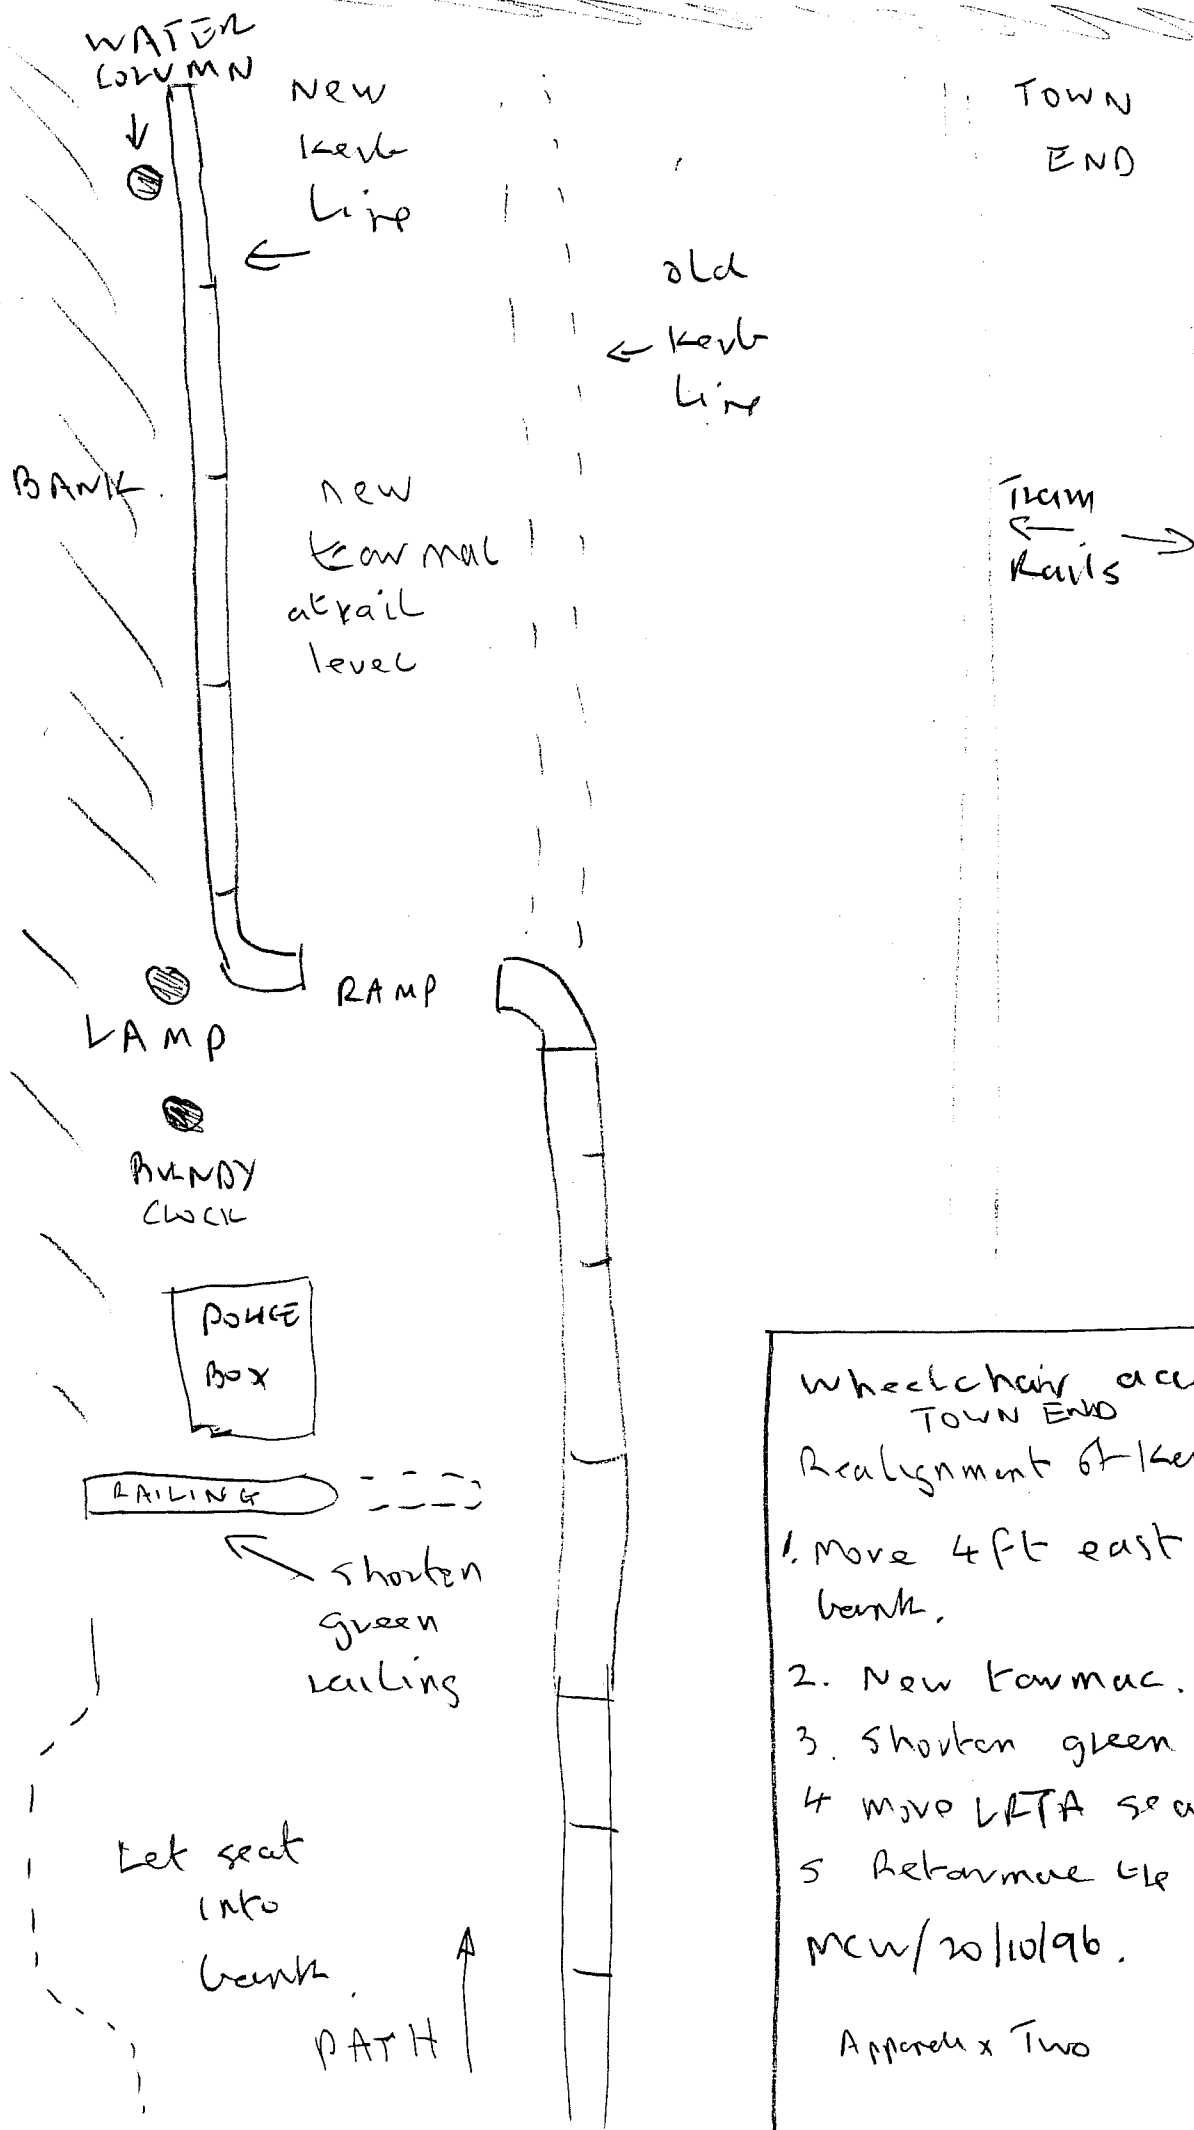 WATER
COLUMN
New
Kerb
Line
TOWN
END
old
Kerb
Line
BANK.
new
tarmac
at rail
level
Tram
Rails
RAMP
LAMP
BUNDY
CLOCK
POLICE
BOX
RAILING
shorten
green
railing
Let seat
into
bank.
PATH
Wheelchair acc
TOWN END
Realignment of Ker
1. Move 4ft east
bank.
2. New tarmac.
3. Shorten green
4 Move LRTA sea
5 Retarmac the
MCW/20/10/96.
Appendix Two